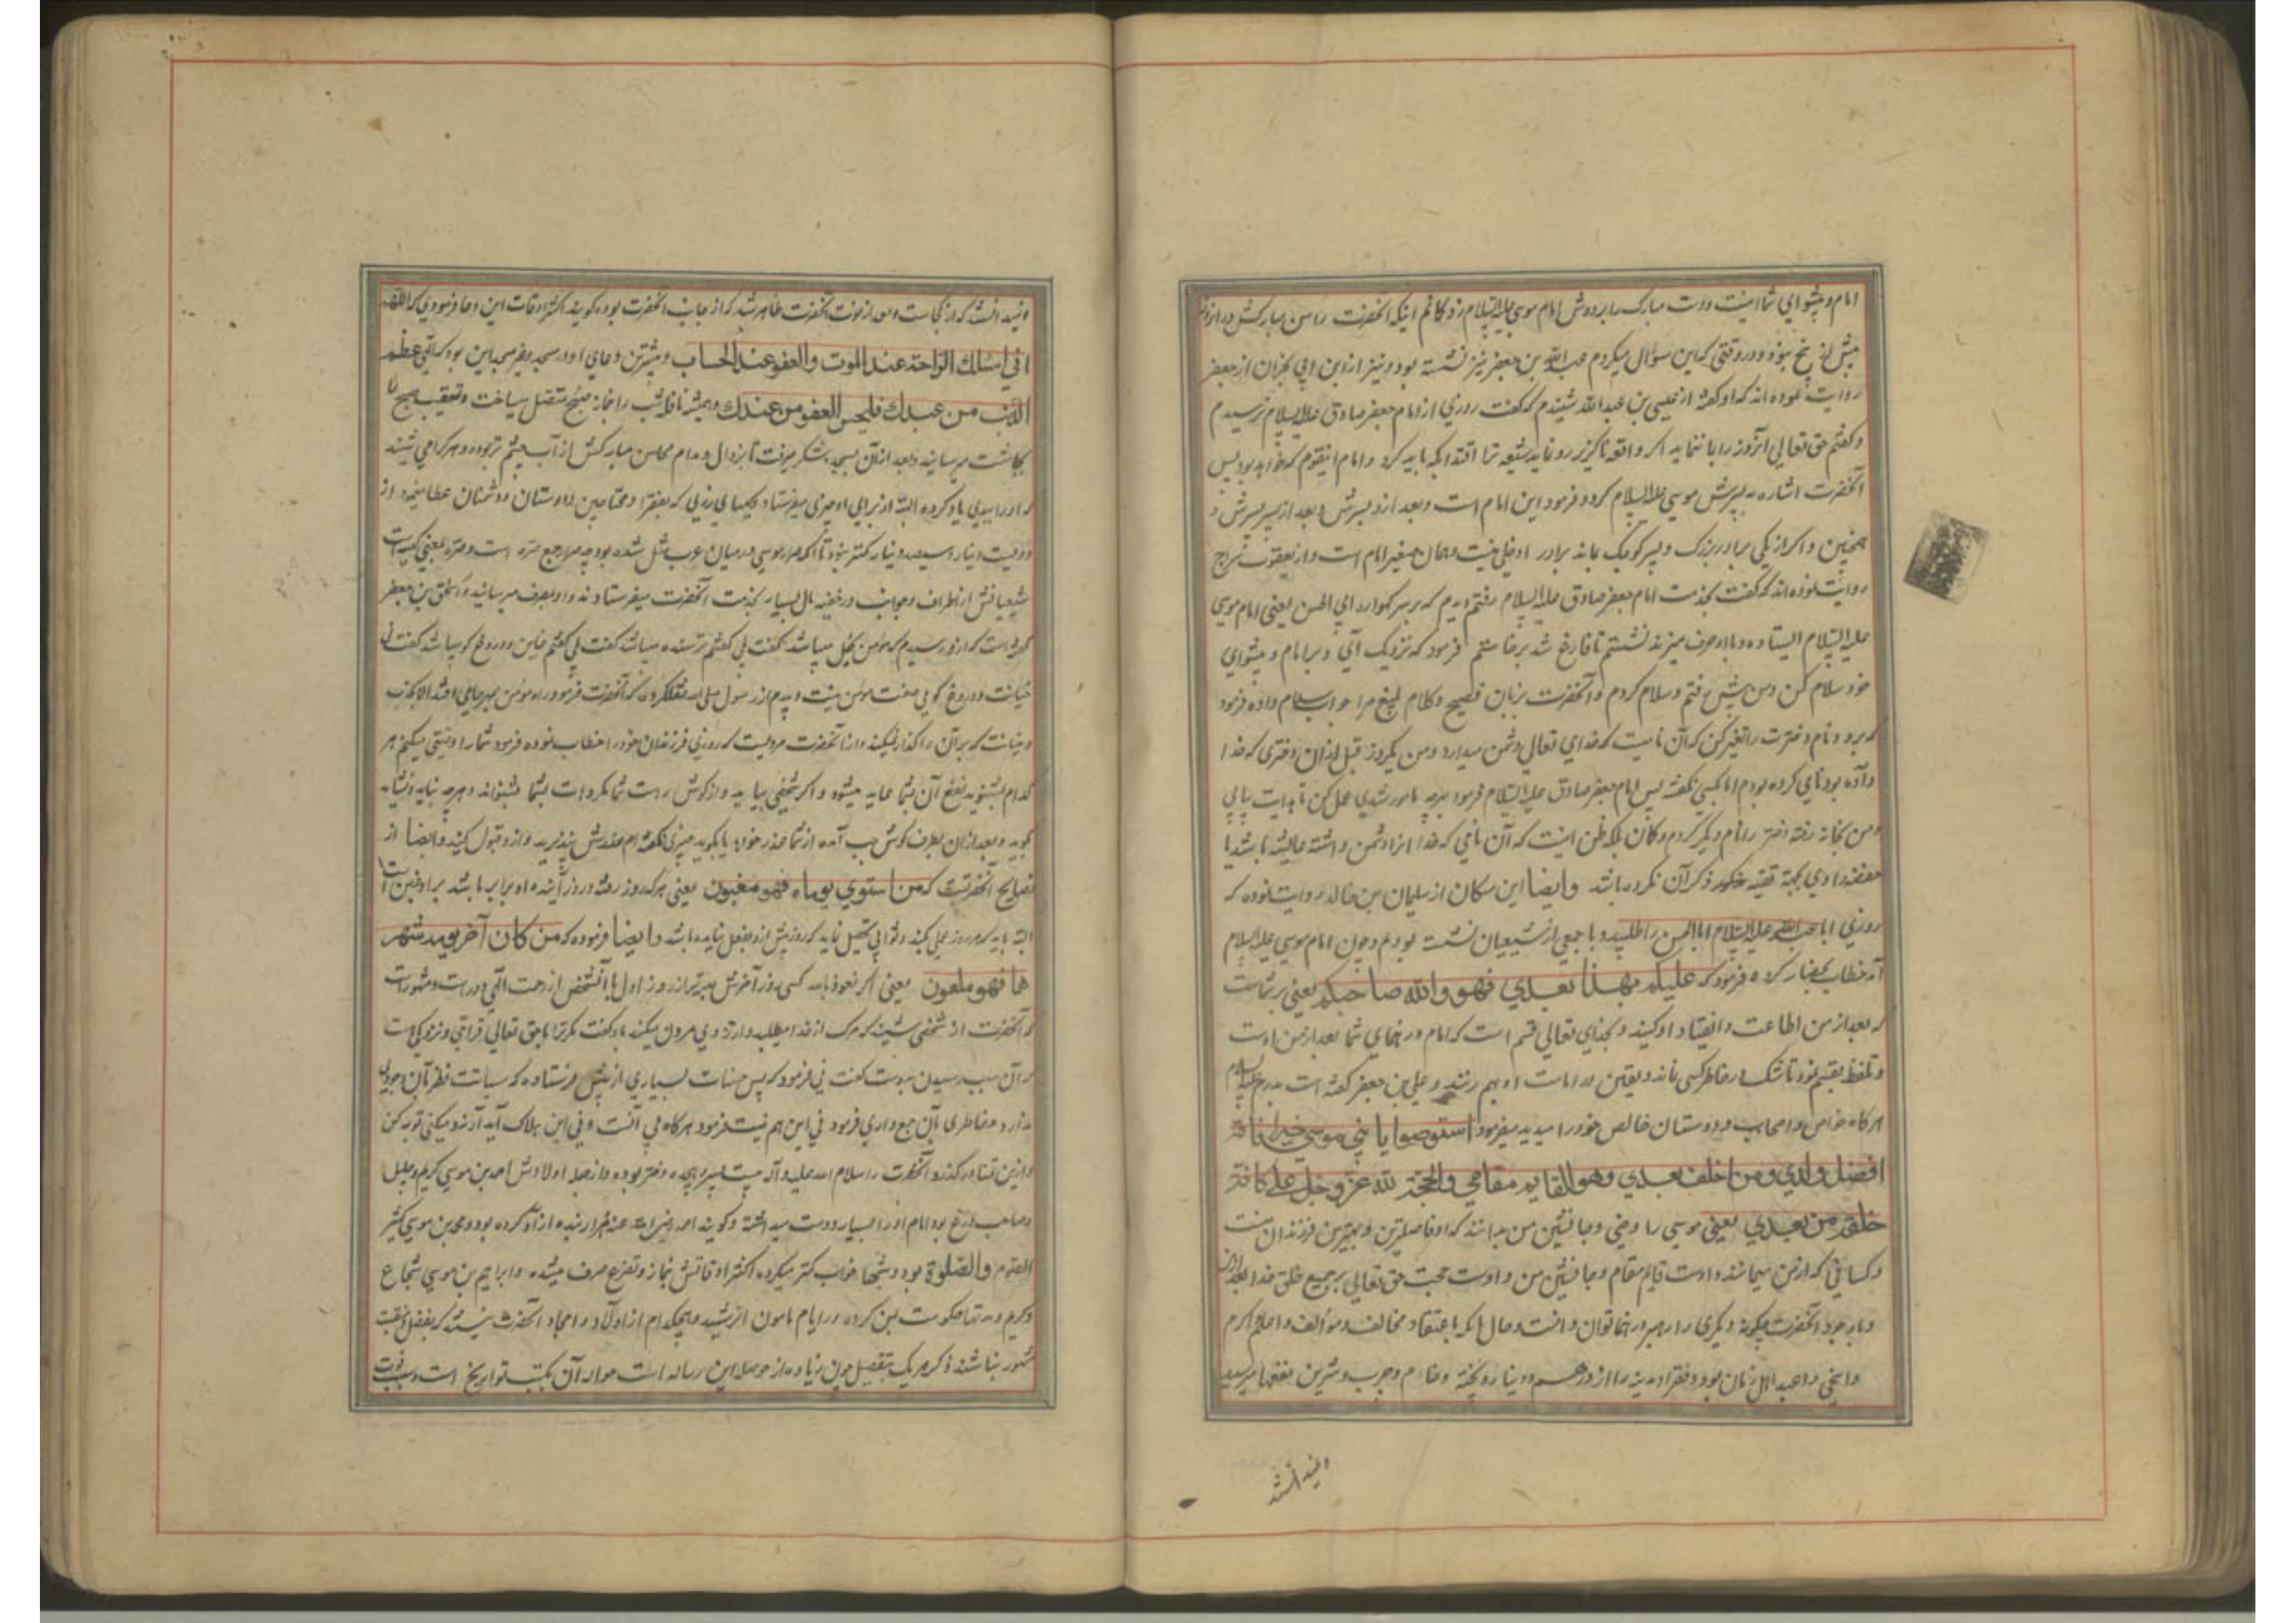 امام و پیشوای شما اینست و دست مبارک را بر دوش امام موسی علیه السلام زد و کاثم اینکه آنحضرت را سن مبارکش در انروز
پیش از پنج نبود و در وقتی که این سؤال میکردم عبد الله بن جعفر نیز نشسته بود و نیز از ابن ابی نجران از جعفر
روایت نموده اند که او گفته از عیسی بن عبد الله شنیدم که گفت روزی از امام جعفر صادق علیه السلام پرسیدم
و گفتم حق تعالی آنروز را بما ننماید اگر واقعه ناگزیر رو نماید شیعه ترا اقتدا بکه باید کرد و امام اینقوم که خواهد بود پس
آنحضرت اشاره به پسرش موسی علیه السلام کرد و فرمود این امام است و بعد ازو پسرش و بعد از پسر پسرش و
همچنین و اگر از یکی برادر بزرگ و پسر کوچک بماند برادر را دخلی نیست و همان صغیر امام است و از یعقوب سراج
روایت نموده اند که گفت بخدمت امام جعفر صادق علیه السلام رفتم دیدم که بر سر گهواره ابی الحسن یعنی امام موسی
علیه السلام ایستاده و با او حرف میزند نشستم تا فارغ شد برخاستم فرمود که نزدیک آی و بر امام و پیشوای
خود سلام کن و من پیش رفتم و سلام کردم و آنحضرت بزبان فصیح و کلام بلیغ مرا جواب سلام داده فرمود
که برو و نام دخترت را تغیر کن که آن نامیست که خدای تعالی دشمن میدارد و من یکروز قبل از ان دختری که خدا
داده بود نامی کرده بودم اما بکسی نگفته پس امام جعفر صادق علیه السلام فرمود بدرچه مامور شدی عمل کن تا هدایت یابی
و من بخانه رفته دختر را نام دیگر کردم و گمان بلکه ظن اینست که آن نامی که خدا انرا دشمن داشته عایشه باشد یا
حفصه راوی بجهة تقیه ذکر آن نکرده باشد وایضا ابن مسکان از سلیمان بن خالد روایت نموده که
روزی ابا عبد الله علیه السلام ابا الحسن را طلبید و با جمعی از شیعیان نشسته بودم و چون امام موسی علیه السلام
آمد خطاب بحضار کرده فرمود که علیکم بهذا بعدی فهو والله صاحبکم یعنی بر شماست
که بعد از من اطاعت و انقیاد او کنید و بخدای تعالی قسم است که امام و رهنمای شما بعد از من اوست
و تلفظ بقسم نمود تا شک در خاطر کسی نماند و یقین در امامت او بهم رسد و علی بن جعفر گفته است پدرم علیه السلام
هرگاه خواص و اصحاب و دوستان خالص خود را میدید میفرمود استوصوا یا بنی موسی خیرا فانه
افضل ولدی ومن اخلف بعدی وهو القایم مقامی والحجة لله عز وجل علی کافة
خلقه من بعدی یعنی موسی را وصی و جانشین من بدانند که او فاضلترین و بهترین فرزندان منست
و کسانی که از من میمانند و اوست قایم مقام و جانشین من و اوست حجت حق تعالی بر جمیع خلق خدا بعد از من
و با وجود آنحضرت چگونه دیگری را رهبر و رهنما توان دانست و حال آنکه باعتقاد مخالف و مؤالف و اعلم و اکرم
و اسخی و اعبد اهل زمان بود و فقراء مدینه را از درهم و دینار و پخته و خام و چرب و شیرین بفقها میرسید
و نمیدانستند
و نمیدانستند که از کجاست و بعد از فوت آنحضرت ظاهر شد که از جانب آنحضرت بوده گویند اکثر اوقات این دعا فرمودی که اللهم
انی اسئلك الراحة عند الموت والعفو عند الحساب و بیشترین دعای او در مسجد پیغمبر این بود که الهی عظم
الذنب من عبدك فلیحسن العفو من عندك و همیشه نافله شب را بنماز صبح متصل میساخت و تعقیب صبح تا
بچاشت میرسانید و بعد از آن بسجده شکر میرفت تا بزوال و مدام محاسن مبارکش از آب چشم تر بوده و هر کرا می شنید
که او را ببدی یاد کرده البته از برای او چیزی میفرستاد و کیسهای زری که بفقرا و محتاجین و دوستان و دشمنان عطا مینمود از
دویست دینار و سیصد دینار کمتر نبود تا آنکه صرار موسی در میان عرب مثل شده بود چه صرار جمع صره است و صره بمعنی کیسه است
شیعیانش از اطراف و جوانب در خفیه مال بسیار بخدمت آنحضرت میفرستادند و او بمصرف میرسانید و اسحق بن جعفر
گوید است که ازو پرسیدم که مؤمن بخیل میباشد گفت بلی گفتم ترسنده میباشد گفت بلی گفتم خاین و دروغ گو میباشد گفت نی
خیانت و دروغ گویی صفت مؤمن نیست و پدرم از رسول صلی الله نقل کرده که آنحضرت فرمود راه مؤمن بهر جا می افتد الا بکذب
و خیانت که بر آن راه گذار نمیکند و از آنحضرت مرویست که روزی فرزندان خود را خطاب نموده فرمود شما را وصیتی میکنم هر
کدام بشنوید نفع آن بشما عاید میشود و اگر شخصی بیاید و از گوش راست شما مکروهات بشما بشنواند و هرچه نباید و نشاید
گوید و بعد از ان بطرف گوش چپ آمده از شما عذر خواهد یا بگوید چیزی نگفته ام عذرش بپذیرید و ازو قبول کنید وایضا از
نصایح آنحضرتست که من استوی یوماه فهو مغبون یعنی هر که روز رفته و روز آینده او برابر باشد براو غبن است
البته باید که هر روز عملی کند و ثوابی تحصیل نماید که روز پیش ازو بفعل نیامده باشد وایضا فرموده که من کان آخر یومیه شر
هما فهو ملعون یعنی اگر نعوذ بالله کسی روز آخرش بدتر از روز اول باشد آنشخص از رحمت الهی دور است و مشهورست
که آنحضرت از شخصی شنید که مرگ از خدا میطلبید و ارزوی مردن میکند باو گفت مگر ترا با حق تعالی قرابتی و نزدیکی است
که آن سبب رسیدن بدوست گفت نی فرمود که پس حسنات بسیاری از پیش فرستاده که سیآتت نظر بآن وجودی
ندارد و خاطری بآن جمع داری فرمود نی این هم نیست فرمود هرگاه نی آنست و نی این هلاک ابد آرزو میکنی توبه کن
و ازین تمنا در گذر و آنحضرت را سلام الله علیه و آله بیست پسر و هیجده دختر بوده و از جمله اولادش احمد بن موسی کریم و جلیل
و صاحب ورع بود امام او را بسیار دوست میداشته و گویند احمد رضی الله عنه هزار بنده ازاد کرده بود و محمد بن موسی کثیر
الصوم والصلوة بود و شبها خواب کمتر میکرده اکثر اوقاتش بنماز و تضرع صرف میشده و ابراهیم بن موسی شجاع
و کریم و مدتها حکومت یمن کرده در ایام مامون الرشید و هیچکدام از اولاد و امجاد آنحضرت نیستند که بفضل و منقبت
مشهور نباشند ذکر هر یک بتفصیل چون زیاده از حوصله این رساله است حواله آن بکتب تواریخ است و سبب فوت